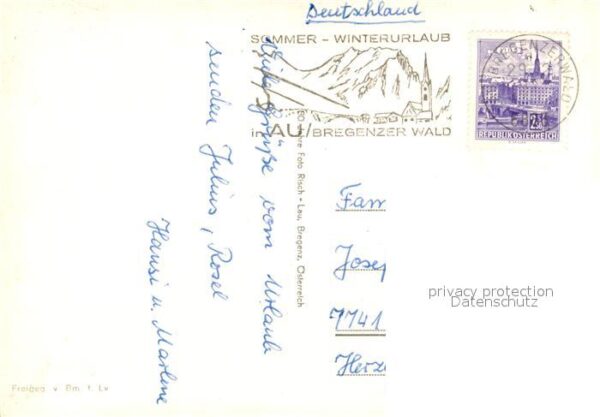 Deutschland
SOMMER - WINTERURLAUB
in AU/BREGENZER WALD
BREGENZERWALD
REPUBLIK ÖSTERREICH
Viele Grüße vom Urlaub
senden Julius, Rosel
Hansi u. Marlene
Jahre Foto Risch - Lau, Bregenz, Österreich
Fam
Jose
7741
Herz
privacy protection
Datenschutz
Freigeg v. Bm. f. Lv